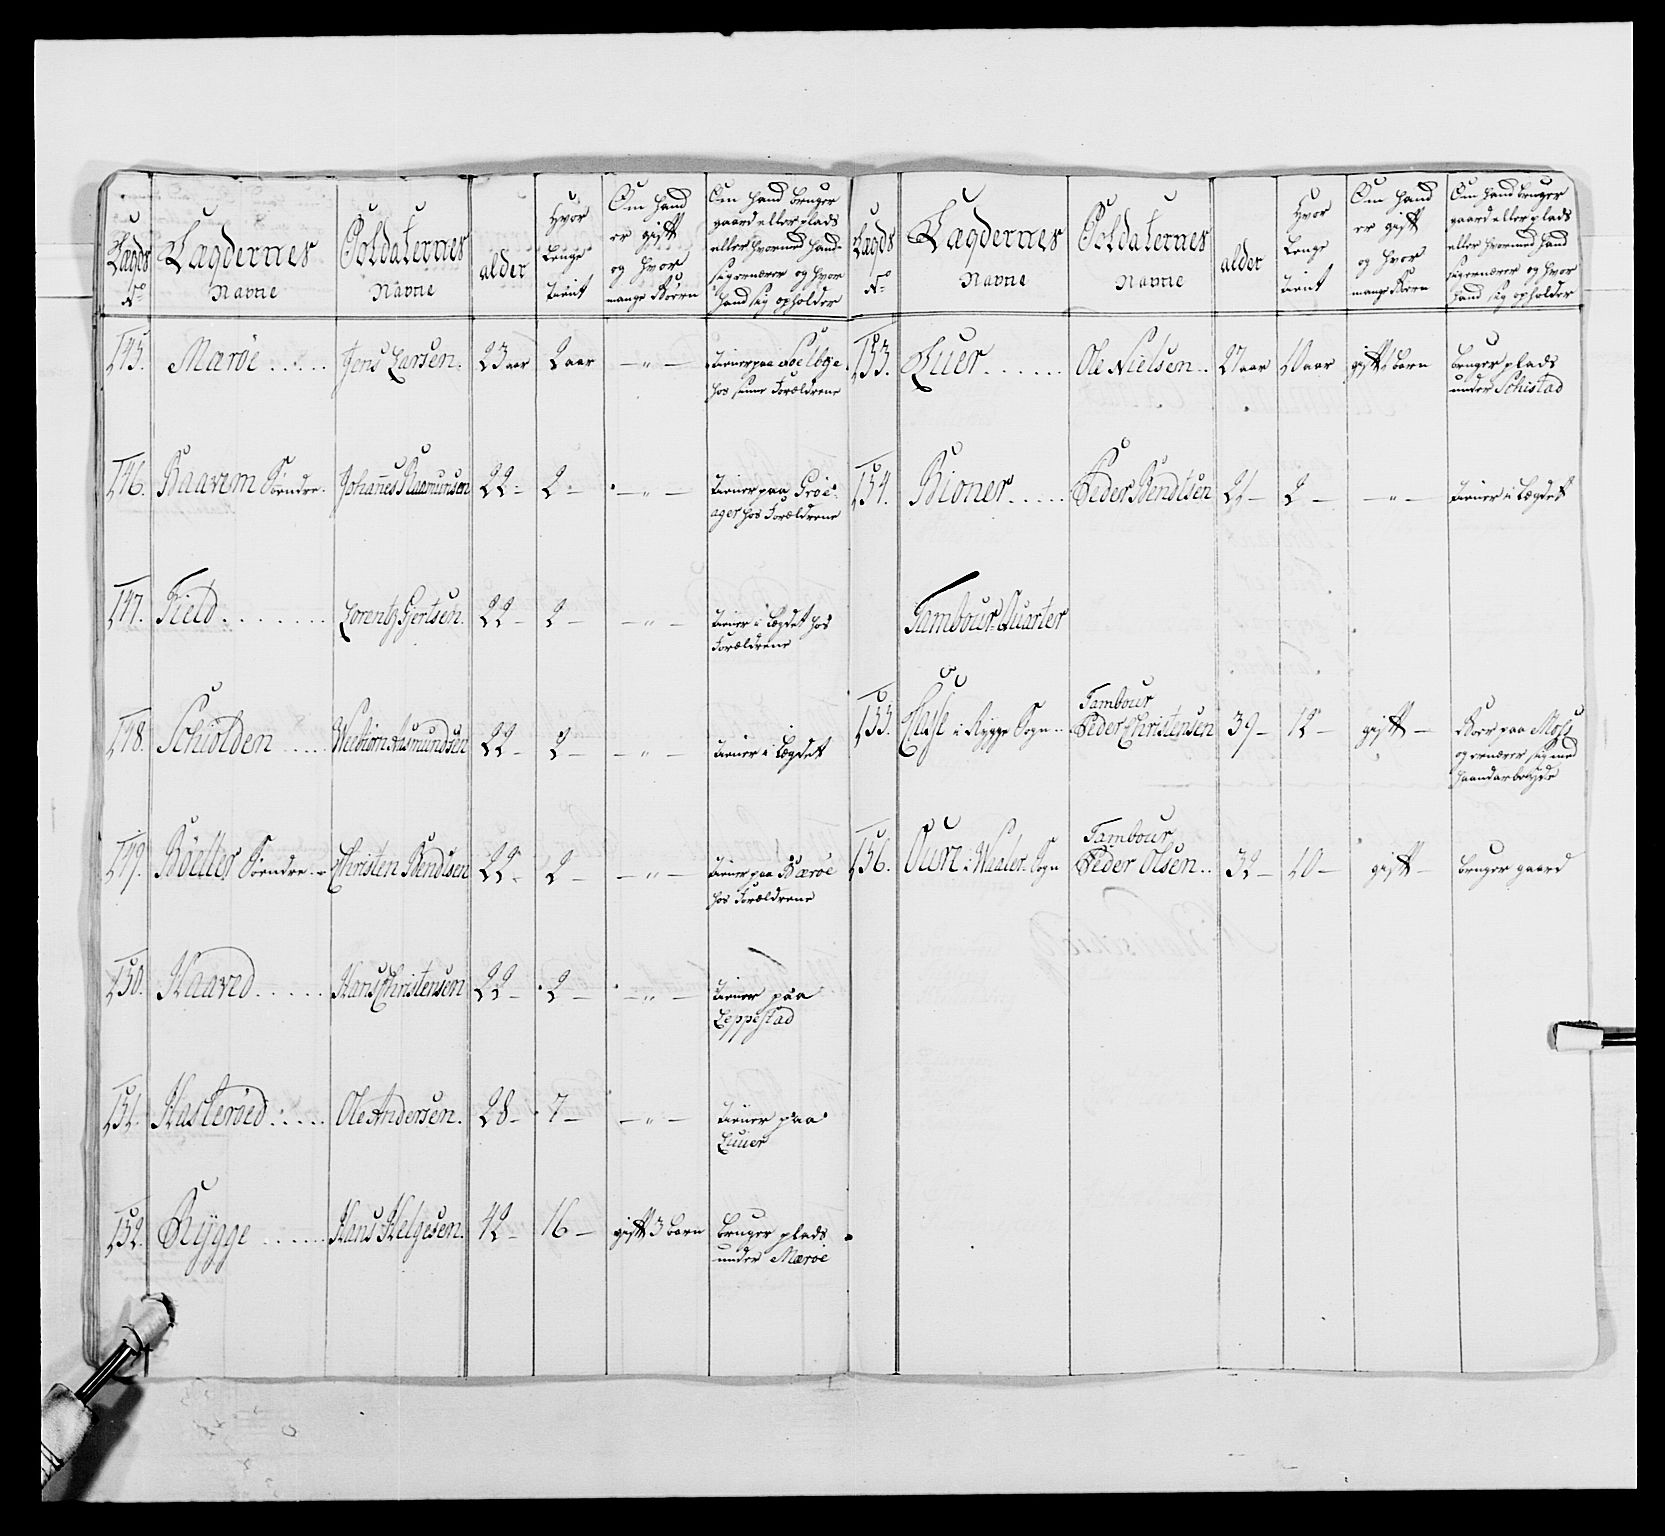 Lægds No
Lægdernes Navne
Soldaternes Navne
alder
Hvor Lenge tient
Om hand er gift og hvor mange Børn
Om hand bruger gaard eller plads eller hvormed hand sig ernærer og hvor hand sig opholder
145. Marøe . . . . . Jens Larsen. 23 aar 2 aar — " — tiener paa Soelbye
hos sinne Forældrene
146. Raavem Søendre. Johannes Rasmunsen 22 - 2 - — " — tiener paa Prøe-
ager hos Forældrene
147. Field . . . . . . . Lorentz Gjertsen. 22 - 2 — — " — tiener i Lægdet hos
Forældrene
148. Schiolden . . . . Weebiørn Asmundsen 22 — 2 — — " — tiener i Lægdet
149. Bøelter Søendre . - Christen Bendtsen 22 - 2 — — " — tiener paa Bærøe
hos Forældrene
150. Haaved . . . . . Hans Christensen 22 — 2 — — " — tiener paa
Leppestad
151. Hasterøed : . . . . Ole Andersen. 28 — 7 — — " — tiener paa
Luuer
152. Rygge . . . . . . Hans Helgesen. 42 — 16 — gift 3 børn bruger plads
under Mærøe
Lægds No
Lægdernes Navne
Soldaternes Navne
alder
Hvor Lenge tient
Om hand er gift og hvor mange Børn
Om hand bruger gaard eller plads eller hvormed hand sig ernærer og hvor hand sig opholder
153. Luer . . . . . . Ole Nielsen . . 27 aar 10 aar gift 1 barn bruger plads
under Schistad
154. Bioner . . . . . Peder Bendtsen 21 — 2 — — " — tiener i Lægdet
Tambour Quarter
Tambour
155. i Rygge Sogn . . Peder Christensen 39 — 12 — gift — Boer paa Moss
og ernærer sig med
haandarbeyde
Tambour
156. Oure i Waaler Sogn Peder Olsen . . 32 — 10 — gift — bruger gaard